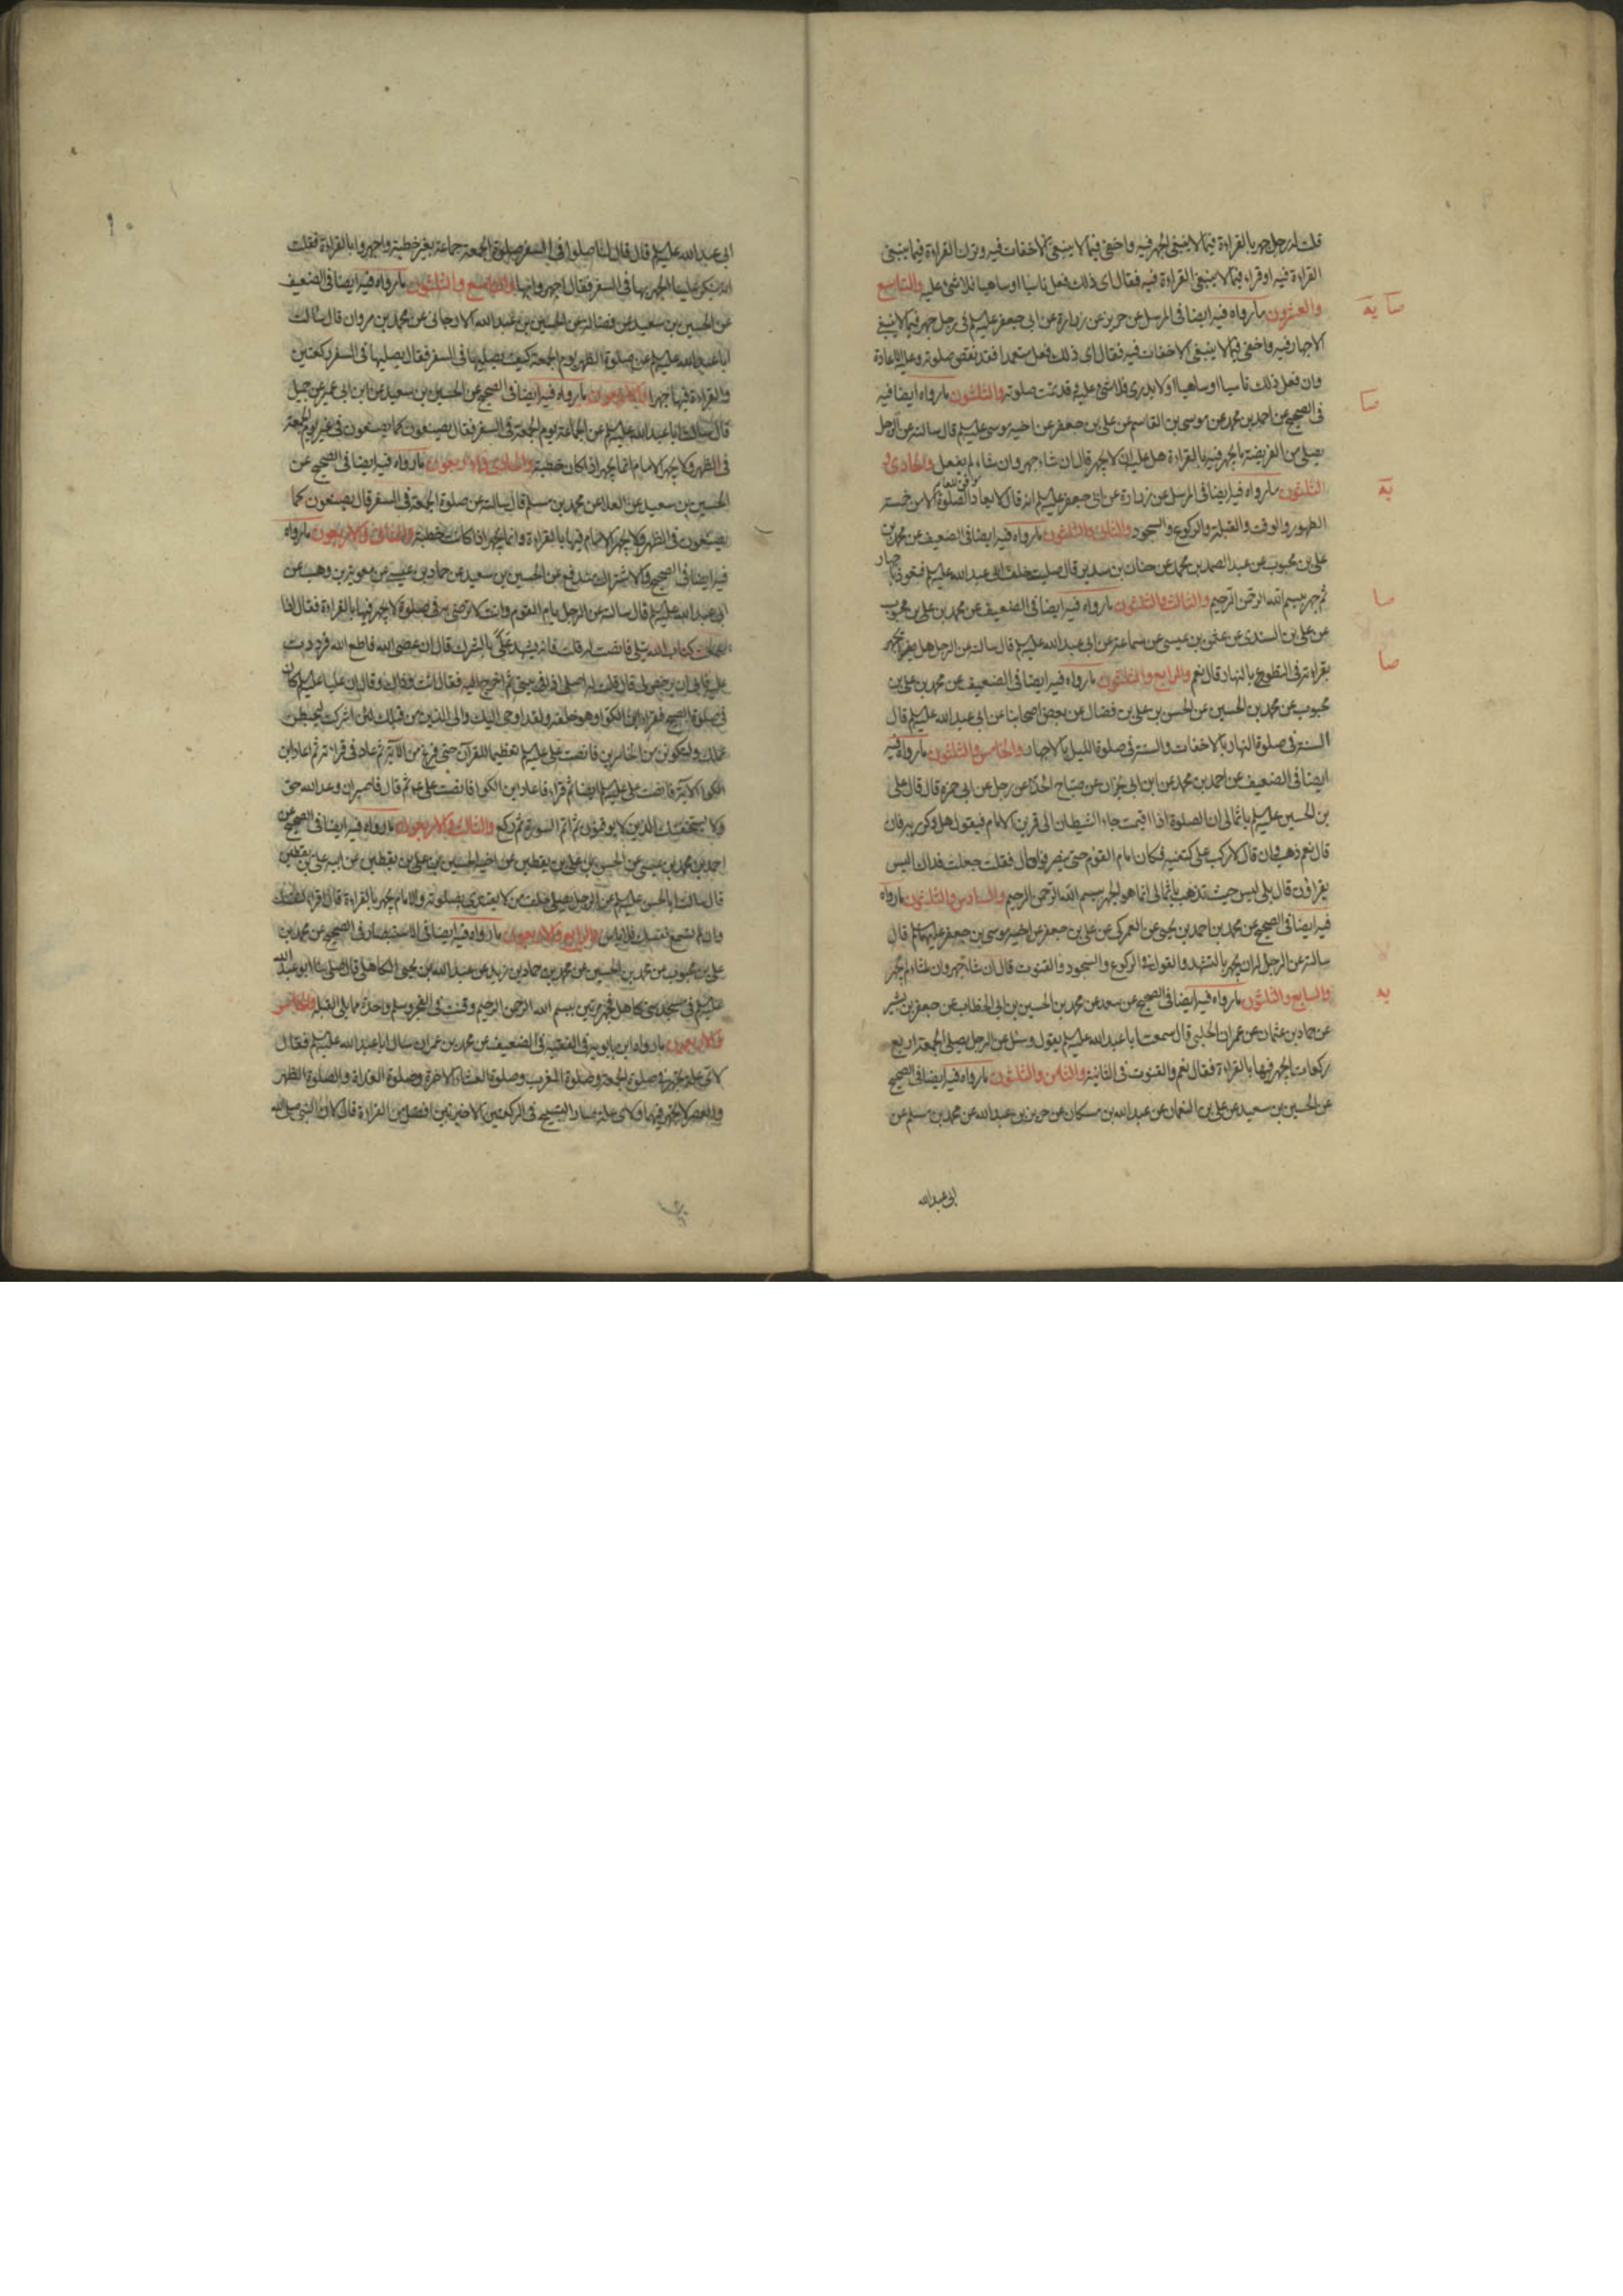 قلت له رجل جهر بالقراءة فيما لا ينبغى الجهر فيه واخفى فيما لا ينبغى الاخفات فيه وترك القراءة فيما ينبغى
القراءة فيه او قراء فيما لا ينبغى القراءة فيه فقال اى ذلك فعل ناسيا او ساهيا فلا شئ عليه والتاسع
والعشرون ما رواه فيه ايضا فى المرسل عن حريز عن زرارة عن ابى جعفر عليه السلم فى رجل جهر فيما لا ينبغى
الاجهار فيه واخفى فيما لا ينبغى الاخفات فيه فقال اى ذلك فعل متعمدا فقد نقض صلوته وعليه الاعادة
وان فعل ذلك ناسيا او ساهيا او لا يدرى فلا شئ عليه وقد تمت صلوته والثلثون ما رواه ايضا فيه
فى الصحيح عن احمد بن محمد عن موسى بن القاسم عن على بن جعفر عن اخيه موسى عليه السلم قال سالته عن الرجل
يصلى من الفريضة ما يجهر فيه بالقراءة هل عليه ان لا يجهر قال ان شاء جهر وان شاء لم يفعل والحادى و
الثلثون ما رواه فيه ايضا فى المرسل عن زرارة عن ابى جعفر عليه السلم انه قال لا يعاد الصلوة الا من خمسة
الطهور والوقت والقبلة والركوع والسجود والثانى والثلثون ما رواه فيه ايضا فى الضعيف عن محمد بن
على بن محبوب عن عبد الصمد بن محمد عن حنان بن سدير قال صليت خلف ابى عبد الله عليه السلم فتعوذ باجهار
ثم جهر ببسم الله الرحمن الرحيم والثالث والثلثون ما رواه فيه ايضا فى الضعيف عن محمد بن على بن محبوب
عن على بن السندى عن عثمن بن عيسى عن سماعة عن ابى عبد الله عليه السلم قال سالته عن الرجل هل يجهر
بقراءته فى التطوع بالنهار قال نعم والرابع والثلثون ما رواه فيه ايضا فى الضعيف عن محمد بن على بن
محبوب عن محمد بن الحسين عن الحسن بن على بن فضال عن بعض اصحابنا عن ابى عبد الله عليه السلم قال
السنة فى صلوة النهار بالاخفات والسنة فى صلوة الليل بالاجهار والخامس والثلثون ما رواه فيه
ايضا فى الضعيف عن احمد بن محمد عن ابن ابى نجران عن صباح الحذاء عن رجل عن ابى حمزة قال قال على
بن الحسين عليه السلم يا ثمالى ان الصلوة اذا اقيمت جاء الشيطان الى قرين الامام فيقول هل ذكر ربه فان
قال نعم ذهب وان قال لا ركب على كتفيه فكان امام القوم حتى ينصرفوا قال فقلت جعلت فداك اليس
يقراون قال بلى ليس حيث تذهب يا ثمالى انما هو الجهر ببسم الله الرحمن الرحيم والسادس والثلثون ما رواه
فيه ايضا فى الصحيح عن محمد بن احمد بن يحيى عن العمركى عن على بن جعفر عن اخيه موسى بن جعفر عليهما السلم قال
سالته عن الرجل له ان يجهر بالتشهد والقول فى الركوع والسجود والقنوت قال ان شاء جهر وان شاء لم يجهر
والسابع والثلثون ما رواه فيه ايضا فى الصحيح عن سعد عن محمد بن الحسين بن ابى الخطاب عن جعفر بن بشير
عن حماد بن عثمان عن عمران الحلبى قال سمعت ابا عبد الله عليه السلم يقول وسئل عن الرجل يصلى الجمعة اربع
ركعات ايجهر فيها بالقراءة فقال نعم والقنوت فى الثانية والثامن والثلثون ما رواه فيه ايضا فى الصحيح
عن الحسين بن سعيد عن على بن النعمان عن عبد الله بن مسكان عن حريز بن عبد الله عن محمد بن مسلم عن
ابى عبد الله
صا يه
صا
يه
صا
صا
يه
ابى عبد الله عليه السلم قال قال لنا صلوا فى السفر صلوة الجمعة جماعة بغير خطبة واجهروا بالقراءة فقلت
انه ينكر علينا الجهر بها فى السفر فقال اجهروا بها والتاسع والثلثون ما رواه فيه ايضا فى الضعيف
عن الحسين بن سعيد عن فضالة عن الحسين بن عبد الله الارجانى عن محمد بن مروان قال سالت
ابا عبد الله عليه السلم عن صلوة الظهر يوم الجمعة كيف يصليها فى السفر فقال يصليها فى السفر ركعتين
والقراءة فيها جهرا والاربعون ما رواه فيه ايضا فى الصحيح عن الحسين بن سعيد عن ابن ابى عمير عن جميل
قال سالت ابا عبد الله عليه السلم عن الجماعة يوم الجمعة فى السفر فقال يصنعون كما يصنعون فى غير يوم الجمعة
فى الظهر ولا يجهر الامام انما يجهر اذا كان خطبة والحادى والاربعون ما رواه فيه ايضا فى الصحيح عن
الحسين بن سعيد عن العلا عن محمد بن مسلم قال سالته عن صلوة الجمعة فى السفر قال يصنعون كما
يصنعون فى الظهر ولا يجهر الامام فيها بالقراءة وانما يجهر اذا كانت خطبة والثانى والاربعون ما رواه
فيه ايضا فى الصحيح والاشتراك مندفع عن الحسين بن سعيد عن حماد بن عيسى عن معوية بن وهب عن
ابى عبد الله عليه السلم قال سالته عن الرجل يام القوم وانت لا ترضى به فى صلوة لا يجهر فيها بالقراءة فقال اذا
سمعت كتاب الله يتلى فانصت له قلت فانه يشهد على بالشرك قال ان عصى الله فاطع الله فرددت
عليه فابى ان يرخص لى قال قلت له اصلى اذا فى بيتى ثم اخرج اليه فقال انت وذاك وقال ان عليا عليه السلم كان
فى صلوة الصبح فقراء ابن الكوا وهو خلفه ولقد اوحى اليك والى الذين من قبلك لئن اشركت ليحبطن
عملك ولتكونن من الخاسرين فانصت على عليه السلم تعظيما للقران حتى فرغ من الاية ثم عاد فى قرائته ثم اعاد ابن
الكوا الاية فانصت على عليه السلم ايضا ثم قراء فاعاد ابن الكوا فانصت على ع ثم قال فاصبر ان وعد الله حق
ولا يستخفنك الذين لا يوقنون ثم اتم السورة ثم ركع والثالث والاربعون ما رواه فيه ايضا فى الصحيح عن
احمد بن محمد بن عيسى عن الحسن بن على بن يقطين عن اخيه الحسين بن على بن يقطين عن ابيه على بن يقطين
قال سالت ابا الحسن عليه السلم عن الرجل يصلى خلف من لا يقتدى بصلوته والامام يجهر بالقراءة قال اقراء لنفسك
وان لم تسمع نفسك فلا باس والرابع والاربعون ما رواه فيه ايضا فى الاستبصار فى الصحيح عن محمد بن
على بن محبوب عن محمد بن الحسين عن محمد بن حماد بن زيد عن عبد الله بن يحيى الكاهلى قال صلى بنا ابو عبد الله
عليه السلم فى مسجد بنى كاهل فجهر مرتين ببسم الله الرحمن الرحيم وقنت فى الفجر وسلم واحدة مما يلى القبلة والخامس
والاربعون ما رواه ابن بابويه فى الفقيه فى الضعيف عن محمد بن عمران سال ابا عبد الله عليه السلم فقال
لاى علة يجهر فى صلوة الجمعة وصلوة المغرب وصلوة العشاء الاخرة وصلوة الغداة والصلوة الظهر
والعصر لا يجهر فيهما ولاى علة صار التسبيح فى الركعتين الاخيرتين افضل من القراءة قال لان النبى صلى الله